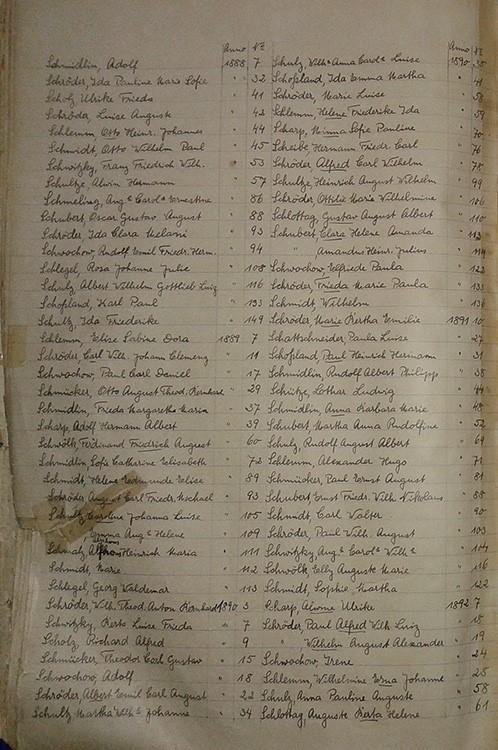 Anno N.º Anno N.º
Schmidlin, Adolf 1888 7 Schulz, Wilh. Anna Carol. Luise 1890 38
Schröder, Ida Pauline Marie Sofie " 32 Schoßland, Ida Emma Martha " 41
Scholz Ulrike Frieda " 41 Schröder, Marie Luise " 58
Schröder, Luise Auguste " 42 Schlemm, Helene Friederike Ida " 59
Schlemm Otto Heinr. Johannes " 44 Scharp, Minna Sofie Pauline " 70
Schmidt, Otto Wilhelm Paul " 45 Scheibe Hermann Friedr. Carl " 76
Schwitzky, Franz Friedrich Wilh. " 53 Schröder Alfred Carl Wilhelm " 78
Schultze, Alwin Hermann " 57 Schultze, Heinrich August Wilhelm " 99
Schmeling, Aug. Carol. Ernestine " 86 Schröder, Ottilie Marie Wilhelmine " 106
Schubert, Oscar Gustav August " 88 Schlottag, Gustav August Albert " 110
Schröder, Ida Clara Melani " 93 Schubert, Clara Helene Amanda " 113
Schwochow, Rudolf Emil Friedr. Herm. " 94 " Amandus Heinr. Julius " 114
Schlegel, Rosa Johanne Julie " 108 Schwochow, Elfriede Paula " 123
Schulz Albert Wilhelm Gottlieb Luig " 116 Schröder, Frieda Marie Paula " 131
Schoßland, Karl Paul " 133 Schmidt, Wilhelm " 136
Schultz, Ida Friederike " 149 Schröder, Marie Bertha Emilie 1891 10
Schlemm, Elise Sabine Dora 1889 7 Schattschneider, Paula Luise " 27
Schröder, Carl Wilh. Johann Clemenz " 11 Schoßland, Paul Heinrich Hermann " 31
Schwochow, Paul Carl Daniel " 17 Schmidlin, Rudolf Albert Philipp " 38
Schmücker, Otto August Theod. Bernhard " 29 Schütze, Lothar Ludwig " 44
Schmidlin, Frieda Margaretha Maria " 37 Schmidlin, Anna Barbara Marie " 48
Scharp, Adolf Hermann Albert " 39 Schubert Martha Anna Rudolfine " 52
Schwölk, Ferdinand Friedrich August " 60 Schulz, Rudolf August Albert " 69
Schmidlin, Sofie Catharine Elisabeth " 72 Schlemm, Alexander Hugo " 71
Schmidt, Helene Edmunde Elise " 89 Schmücker, Paul Ernst August " 81
Schröder August Carl Friedr. Michael " 93 Schubert Ernst Friedr. Wilh. Nikolaus " 88
Schulz, Caroline Johanna Luise " 105 Schmidt, Carl Walter " 90
Emma Aug. Helene " 109 Schröder, Paul Wilh. August " 103
Schmalz, Alfons Heinrich Maria " 111 Schwitzky, Aug. Carol. Wilh. " 104
Schmidt, Marie " 112 Schwölk, Elly Auguste Marie " 116
Schlegel, Georg Waldemar " 113 Schmidt, Sophie Martha " 122
Schröder, Wilh. Theod. Anton Bernhard 1890 3 Scharp, Alwine Ulrike 1892 7
Schwitzky, Berta Luise Frieda " 7 Schröder, Paul Alfred Wilh. Luig " 18
Scholz, Richard Alfred " 9 " Wilhelm August Alexander " 19
Schmücker, Theodor Carl Gustav " 15 Schwochow, Irene " 24
Schwochow, Adolf " 18 Schlemm, Wilhelmine Erna Johanne " 25
Schröder, Albert Emil Carl August " 22 Schulz, Anna Pauline Auguste " 58
Schultz, Martha Wilh. Johanne " 34 Schlottag, Auguste Berta Helene " 61